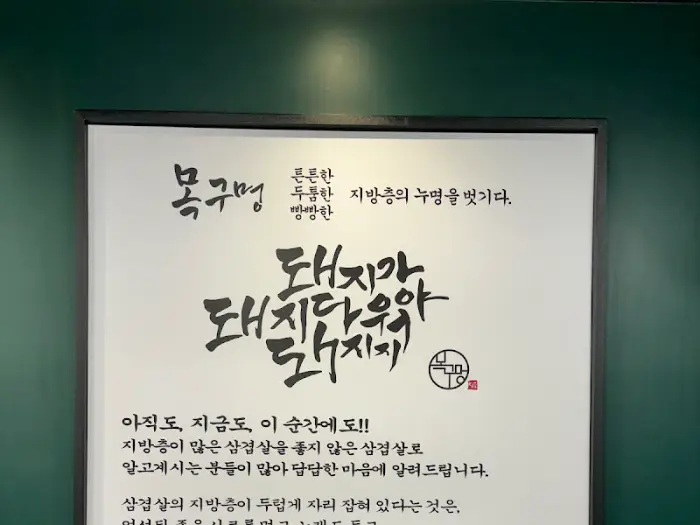 목구멍
튼튼한
두툼한
빵빵한
지방층의 누명을 벗기다.
돼지가
돼지다워야
돼지지
목구멍
아직도, 지금도, 이 순간에도!!
지방층이 많은 삼겹살을 좋지 않은 삼겹살로
알고계시는 분들이 많아 답답한 마음에 알려드립니다.
삼겹살의 지방층이 두텁게 자리 잡혀 있다는 것은,